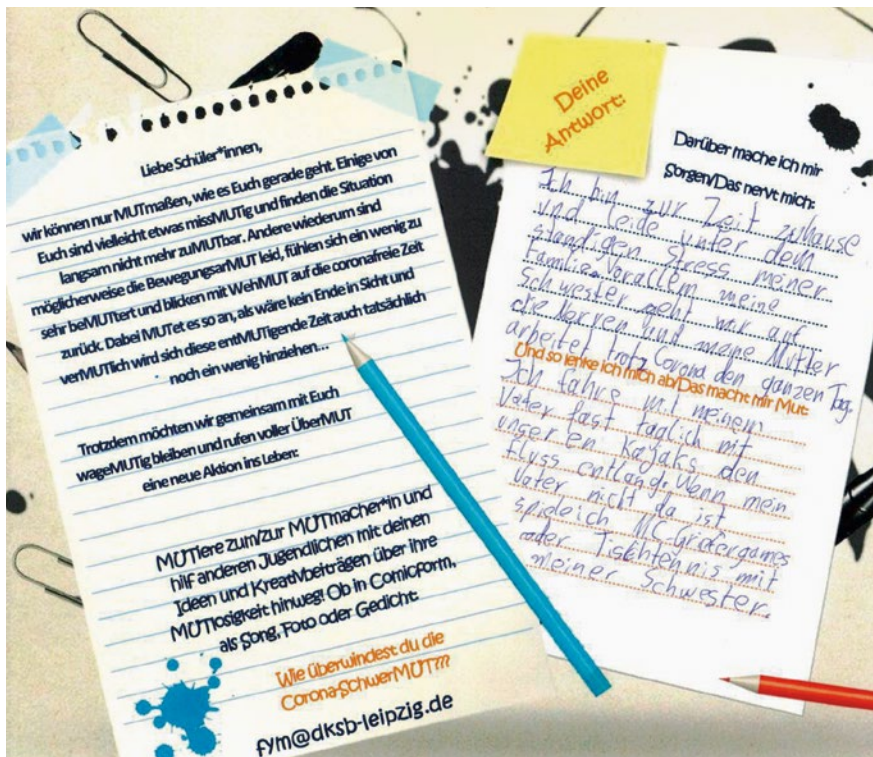 Liebe Schüler*innen,
wir können nur MUTmaßen, wie es Euch gerade geht. Einige von
Euch sind vielleicht etwas missMUTig und finden die Situation
langsam nicht mehr zuMUTbar. Andere wiederum sind
möglicherweise die BewegungsarMUT leid, fühlen sich ein wenig zu
sehr beMUTtert und blicken mit WehMUT auf die coronafreie Zeit
zurück. Dabei MUTet es so an, als wäre kein Ende in Sicht und
verMUTlich wird sich diese entMUTigende Zeit auch tatsächlich
noch ein wenig hinziehen...
Trotzdem möchten wir gemeinsam mit Euch
wageMUTig bleiben und rufen voller ÜberMUT
eine neue Aktion ins Leben:
MUTiere zum/zur MUTmacher*in und
hilf anderen Jugendlichen mit deinen
Ideen und Kreativbeiträgen über ihre
MUTlosigkeit hinweg! Ob in Comicform,
als Song, Foto oder Gedicht
Wie überwindest du die
Corona-SchwerMUT???
fym@dksb-leipzig.de
Deine
Antwort:
Darüber mache ich mir
Sorgen/Das nervt mich:
Ich bin zur Zeit zuhause
und leide unter dem
ständigen Stress meiner
Familie. Vorallem meine
Schwester geht mir auf
die Nerven und meine Mutter
arbeitet trotz Corona den ganzen Tag.
Und so lenke ich mich ab/Das macht mir Mut:
Ich fahre mit meinem
Vater fast täglich mit
unseren Kajaks den
Fluss entlang. Wenn mein
Vater nicht da ist
spiele ich MC-Griefergames
oder Tischtennis mit
meiner Schwester.